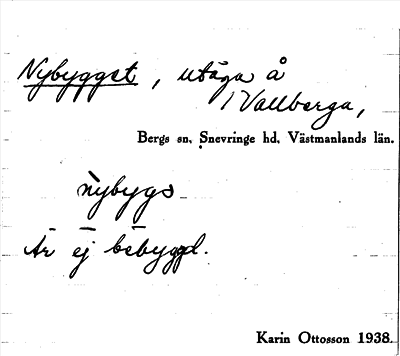 Nybygget, utäga å
1 Vallberga,
Bergs sn, Snevringe hd, Västmanlands län.
nỳbygs
Är ej bebyggd.
Karin Ottosson 1938.